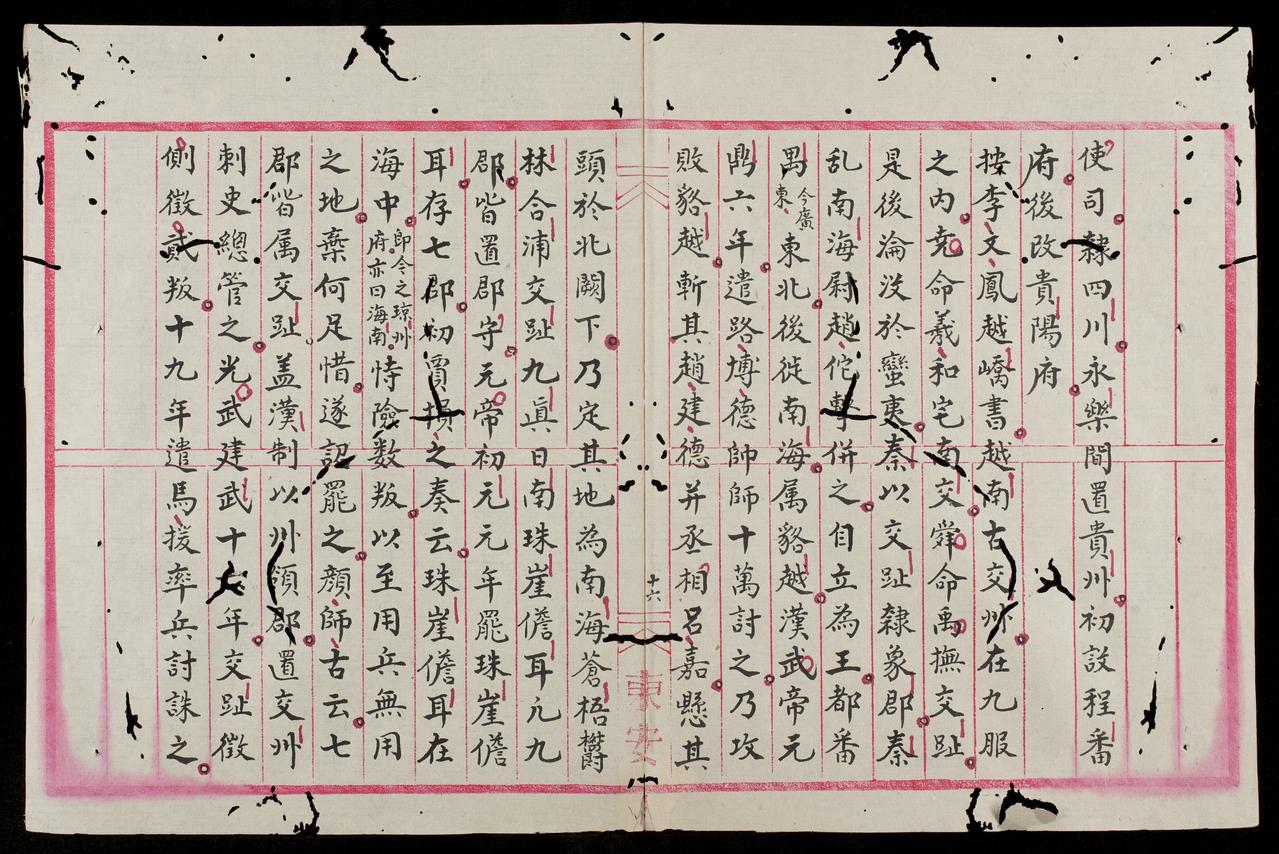 使司隸四川永樂間置貴州初設程番
府後改貴陽府
按李文鳳越嶠書越南古交州在九服
之内尭命羲和宅南交舜命禹撫交趾
是後淪没於蠻夷秦以交趾隸象郡秦
乱南海尉趙佗擊併之自立為王都番
禺今廣東東北後徙南海属貉越漢武帝元
鼎六年遣路博德帥師十萬討之乃攻
敗貉越斬其趙建德并丞相呂嘉懸其
十六
東安
頭於北闕下乃定其地為南海蒼梧欝
林合浦交趾九眞日南珠崖儋耳凢九
郡皆置郡守元帝初元元年罷珠崖儋
耳存七郡初賈損之奏云珠崖儋耳在
海中即今之琼州府亦曰海南恃險数叛以至用兵無用
之地棄何足惜遂詔罷之顔師古云七
郡皆属交趾盖漢制以州領郡置交州
刺史總管之光武建武十年交趾徴
側徴貳叛十九年遣馬援率兵討誅之